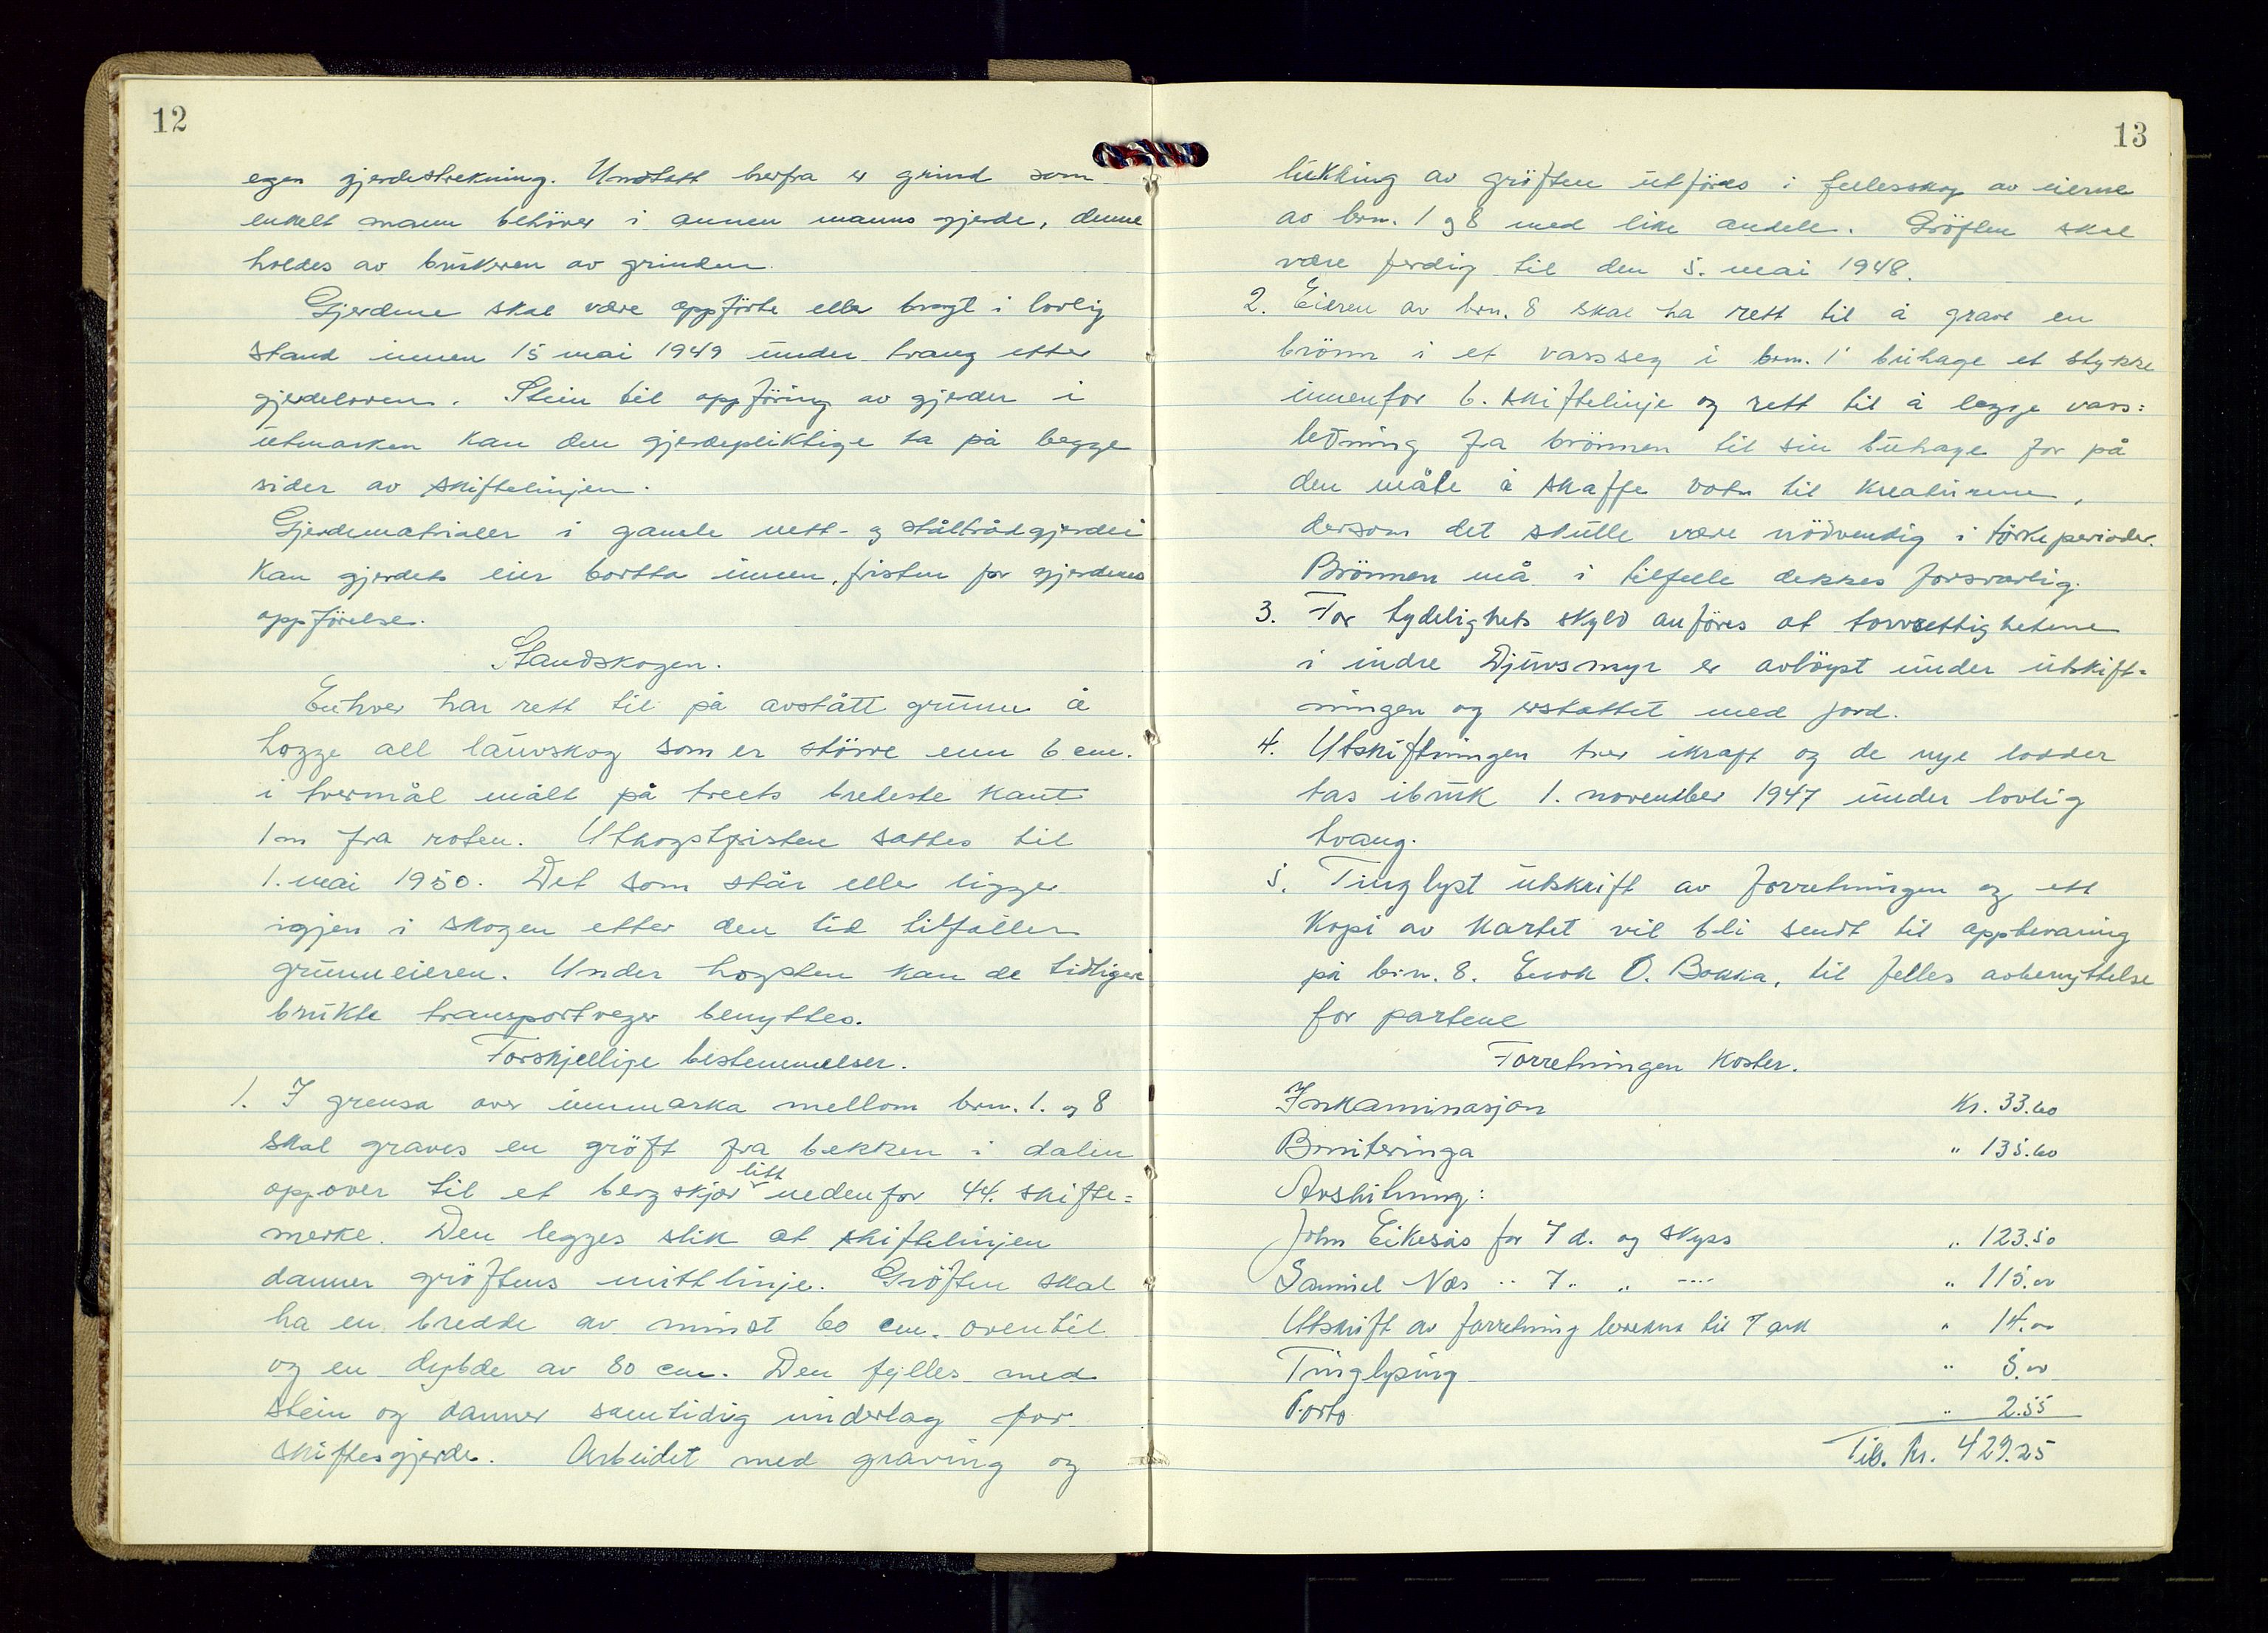 12
egen gjerdestrekning. Unntatt herfra er grind som
enkelt mann behöver i annen manns gjerde, denne
holdes av brukeren av grinden.
Gjerdene skal være oppförte eller bragt i lovlig
stand innen 15 mai 1949 under tvang etter
gjerdeloven. Stein til oppföring av gjerder i
utmarken kan den gjerdepliktige ta på begge
sider av skiftelinjen.
Gjerdematrialer i gamle nett- og ståltrådgjerder
kan gjerdets eier bortta innen fristen for gjerdenes
oppförelse.
Standskogen.
Enhver har rett til på avstått grunn å
hogge all lauvskog som er större enn 6 cm.
i tvermål målt på treets bredeste kant
1 m fra roten. Uthogstfristen settes til
1. mai 1950. Det som står eller ligger
igjen i skogen etter den tid tilfaller
grunneieren. Under hogsten kan de tidligere
brukte transportveger benyttes.
Forskjellige bestemmelser.
1. I grensa over innmarka mellom brn. 1. og 8
skal graves en gröft fra bekken i dalen
oppover til et bergskjær litt nedenfor 44. skifte=
merke. Den legges slik at skiftelinjen
danner gröftens mittlinje. Gröften skal
ha en bredde av minst 60 cm. oventil
og en dybde av 80 cm. Den fylles med
stein og danner samtidig underlag for
skiftesgjerde. Arbeidet med graving og
13
lukking av gröften utföres i fellesskap av eierne
av brn. 1 og 8 med like andele. Gröften skal
være ferdig til den 5. mai 1948.
2. Eieren av brn. 8 skal ha rett til å grave en
brönn i et vasseg i brn. 1' buhage et stykke
innenfor 6. skiftelinje og rett til å legge vass=
ledning fra brönnen til sin buhage for på
den måte å skaffe vatn til kreaturene,
dersom det skulle være nödvendig i törkeperioder.
Brönnen må i tilfelle dekkes forsvarlig.
3. For tydelighets skyld anföres at torvrettighetene
i indre Djuvsmyr er avlöyst under utskift=
ningen og erstattet med jord.
4. Utskiftningen trer ikraft og de nye lodder
tas ibruk 1. november 1947 under lovlig
tvang.
5. Tinglyst utskrift av forretningen og ett
kopi av kartet vil bli sendt til oppbevaring
på br.n. 8. Enok O. Bokka, til felles avbenyttelse
for partene
Forretningen koster.
Inkaminasjon Kr. 33.60
Boniteringa " 135.60
Avskilning:
John Eikesås for 7 d. og skyss " 123.50
Samuel Næs " 7 " " " 115.00
Utskrift av forretning beregna til 7 ark " 14.00
Tinglysing " 5.00
Porto " 2.55
Tils. Kr. 429.25